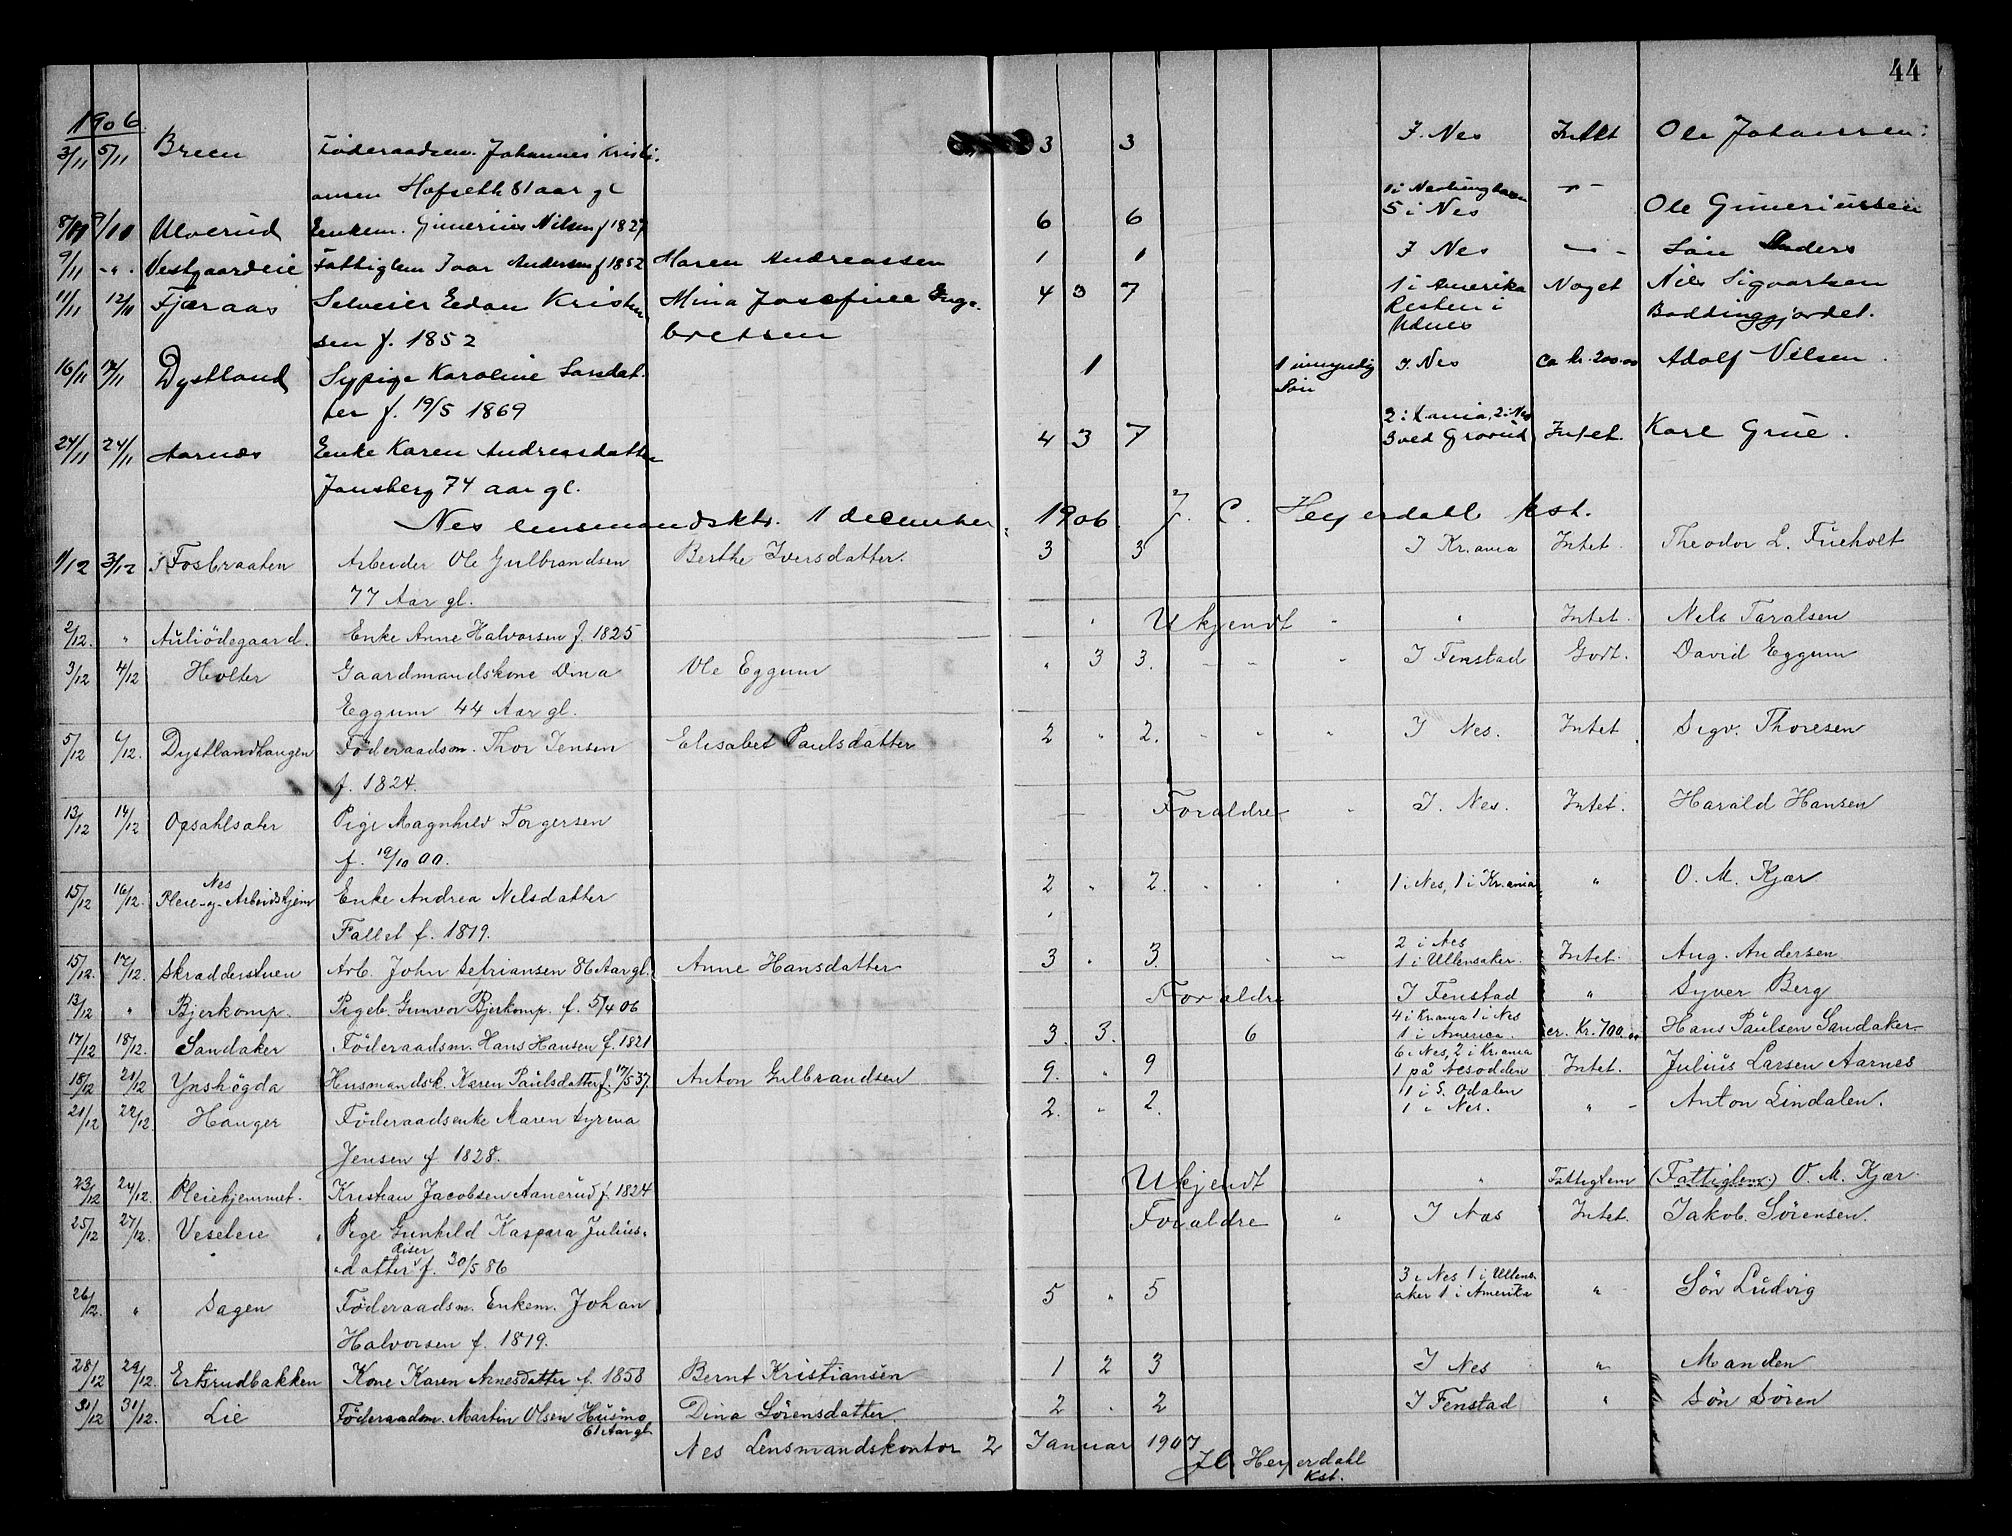 44
1906.
3/11 5/11 Breen Føderaadsm. Johannes Kristi- 3 3 I. Nes Intet Ole Johansen
ansen Hofseth 81 aar gl
8/11 9/11 Ulverud Enkem. Gunerius Nilsen f 1827 6 6 1 i 5 i Nes Ole Guneriussen
9/11 -"- Vestgaardeie Fattiglem Ivar Andersen f 1852 Maren Andreassen 1 1 I Nes Søn Anders
11/11 12/11 Fjæraas Selveier Kristian- Mina Josefine Inge- 4 3 7 1 i Amerika Noget Nils Sigvartsen
Resten i Baddinggjordet.
Udnes
sen f. 1852 bretsen
16/11 17/11 Dystland Sypige Karoline Larsdat- 1 1 umyndig Søn I. Nes ca kr. 200.00 Adolf Nilsen.
ter f. 19/5 1869
24/11 24/11 Aarnæs Enke Karen Andreasdatter 4 3 7 2 i Kr.ania, 2 i Nes 3 ved Grorud Intet. Karl Grue.
Jonsberg 74 aar gl.
Nes lensmandsktr. 1 december 1906. J. C. Heyerdahl kst.
1/12 3/12 Fosbraaten Arbeider Ole Gulbrandsen Berthe Iversdatter. 3 3 I Kr.ania Intet. Theodor L. Fueholt
77 Aar gl.
2/12. " Auliödegaard. Enke Anne Halvorsen f. 1825 " Ukjendt " " Intet. Nils Taralsen
3/12 4/12 Holter Gaardmandskone Dina Ole Eggum " 3 3. " " " I Fenstad Godt. David Eggum
Eggum 44 Aar gl.
5/12 6/12. Dystlandhaugen Føderaadsm. Thor Jensen Elisabet Paulsdatter 2 " 2. " " " I Nes. Intet. Sigv. Thoresen
f. 1824.
13/12 14/12 Opsahlsæter Pige Magnhild Torgersen — Foræeldre " I. Nes. Intet. Harald Hansen
f. 19/10 00.
15/12 16/12. Nes Pleie- og Arbeidshjem Enke Andrea Nilsdatter 2 " 2. " " " 1 i Nes, 1 i Kr.ania " O. M. Kjær.
Fallet f. 1819.
15/12. 17/12. Skradderstuen Arb. John Petriansen 86 Aar gl. Anne Hansdatter 3 " 3. " " 2 i Nes 1 i Ullensaker. Intet. Aug. Andersen
13/12 " Bjerkomp. Pigeb. Gunvor Bjerkomp. f. 5/4 06 Forældre I Fenstad " Syver Berg
17/12 18/12. Sandaker Føderaadsm. Hans Hansen f. 1821 3. 3. 6 4 i Kr.ania 1 i Nes 1 i Amerika. cr. Kr. 700.00 Hans Paulsen Sandaker
18/12 21/12 Ynshögda Husmandsk. Karen Paulsdatter f. 17/5 37. Anton Gulbrandsen 9. " 9 6 i Nes, 2 i Kr.ania 1 på Nesodden Intet. Julius Larsen Aarnes
21/12 22/12. Hauger Føderaadsenke Maren Syrena 2. " 2. 1 i S. Odalen 1 i Nes. " Anton Lindalen.
Jensen f 1828.
23/12 24/12. Pleiehjemmet. Kristian Jacobsen Aanerud f. 1824 Ukjendt " Fattiglem (Fattiglem) O. M. Kjær.
25/12 27/12. Veseleie Pige Gunhild Kaspara Julius- Forældre " I Nes Intet. Jakob Sørensen.
Riser
datter f. 30/5 86
26/12. " Sagen Føderaadsm. Enkem. Johan 5 " 5 3 i Nes 1 i Ullens- aker 1 i Amerika " Søn Ludvig
Halvorsen f. 1819.
28/12 29/12. Ertsrudbakken Kone Karen Arnesdatter f. 1858 Bernt Kristiansen 1 2 3 I Nes " Manden
31/12 31/12. Lie Føderaadsm. Martin Olsen Husmo 61 Aar gl Dina Sörensdatter. 2 . 2 I Fenstad " Søn Sören
Nes Lensmandskontor 2 Januar 1907
J.C. Heyerdahl
Kst.